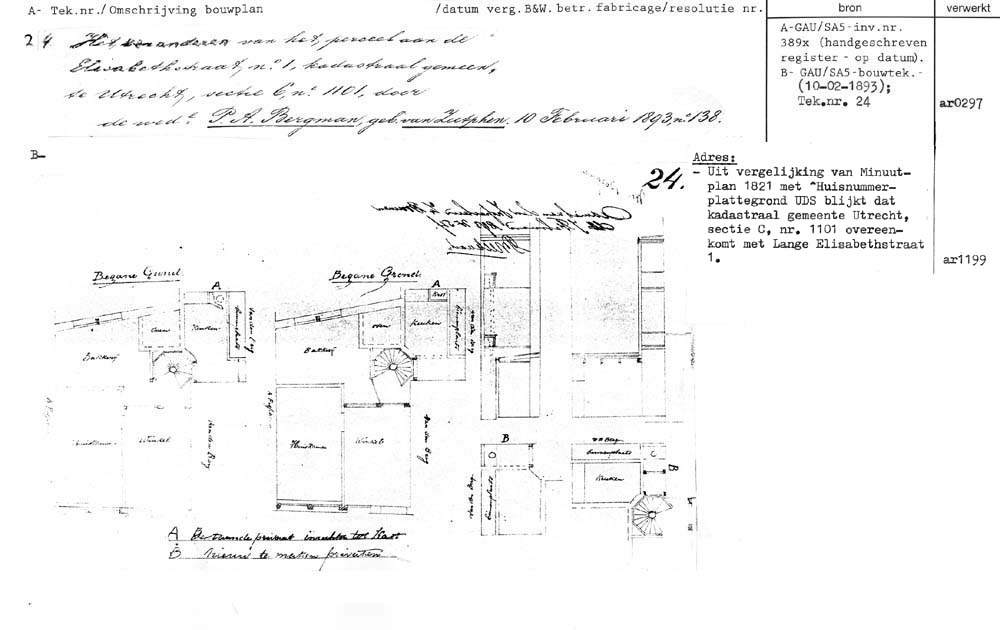 A- Tek.nr./Omschrijving bouwplan /datum verg.B&W.betr.fabricage/resolutie nr.
bron
verwerkt
24 Het veranderen van het perceel aan de
Elisabethstraat, nº 1, kadastraal gemeen,
te Utrecht, sectie C, nº 1101, door
de wed.e P. A. Bergman, geb. van Zutphen. 10 Februari 1893, nº 138.
A-GAU/SA5-inv.nr.
389x (handgeschreven
register - op datum).
B- GAU/SA5-bouwtek.-
(10-02-1893);
Tek.nr. 24
ar0297
B-
24.
Adres:
- Uit vergelijking van Minuut-
plan 1821 met "Huisnummer-
plattegrond UDS blijkt dat
kadastraal gemeente Utrecht,
sectie C, nr. 1101 overeen-
komt met Lange Elisabethstraat
1.
ar1199
Begane Grond.
Begane Grond.
A
A
Kast
Oven
Keuken
oven
Keuken
Bakkerij
Bakkerij
Winkel
Winkel
van den Berg
van den Berg
B
O
C
B
Keuken
A Bestaande privaat inrichten tot Kast
B Nieuw te maken privaten